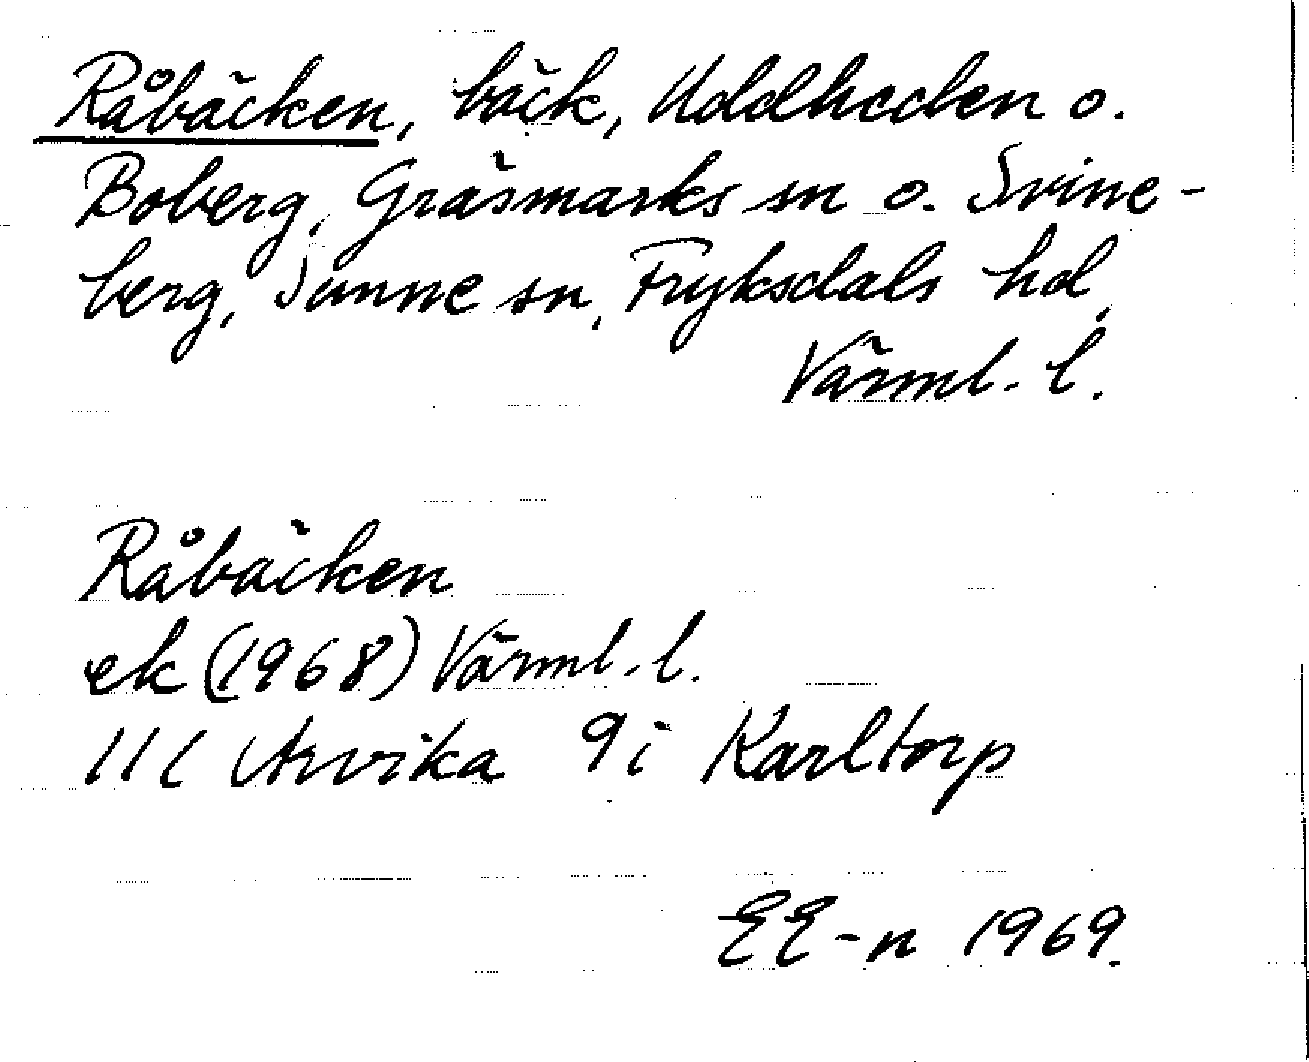 Råbäcken, bäck, Uddheden o.
Boberg, Gräsmarks sn o. Svine-
berg, Sunne sn, Fryksdals hd,
Värml. l.
Råbäcken
ek (1968) Värml. l.
11C Arvika 9i Karltorp
EE-n 1969.